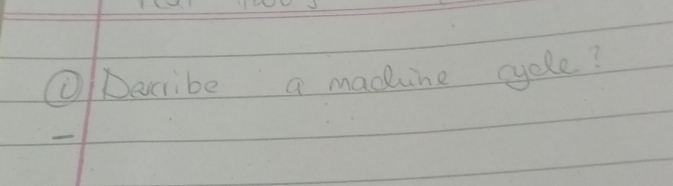 ① Describe a machine cycle?
–